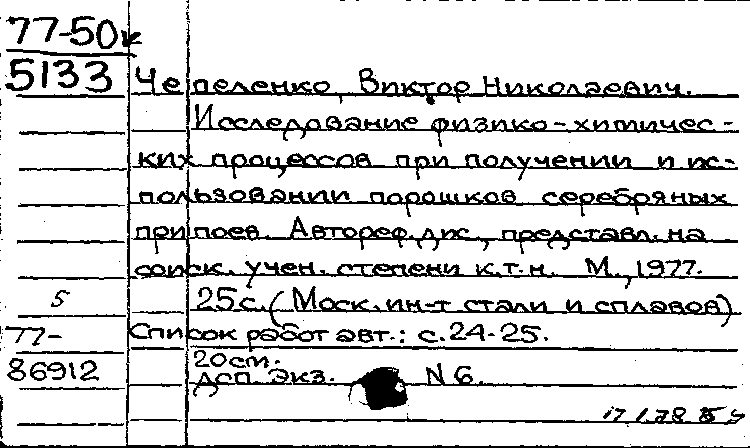 77-50к
5133
Чепеленко, Виктор Николаевич.
Исследование физико-химичес-
ких процессов при получении и ис-
пользовании порошков серебряных
припоев. Автореф. дис., представл. на
соиск. учен. степени к.т.н. М., 1977.
5 25с. (Моск. ин-т стали и сплавов)
77- Список работ авт.: с.24-25.
86912 20см.
дсп. Экз. N 6.
17 1.78